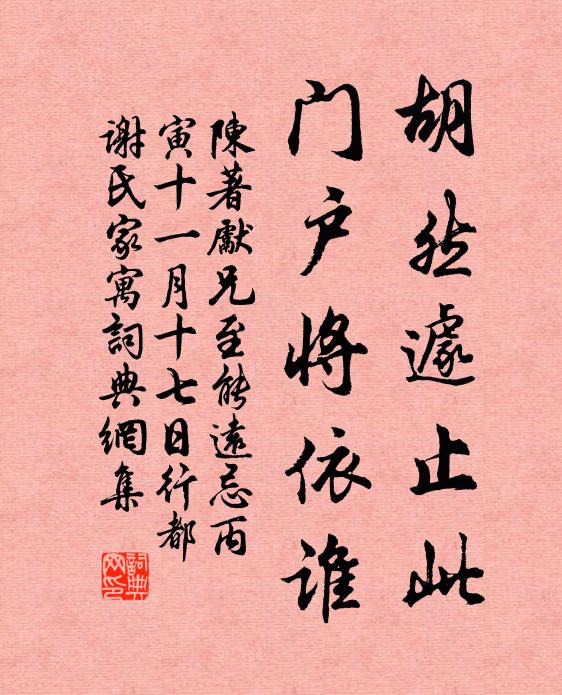 胡然遽止此
门户将依谁
陳著獻兄至能遠忌丙
寅十一月十七日行都
谢氏家寓詞典網集
詞典网印